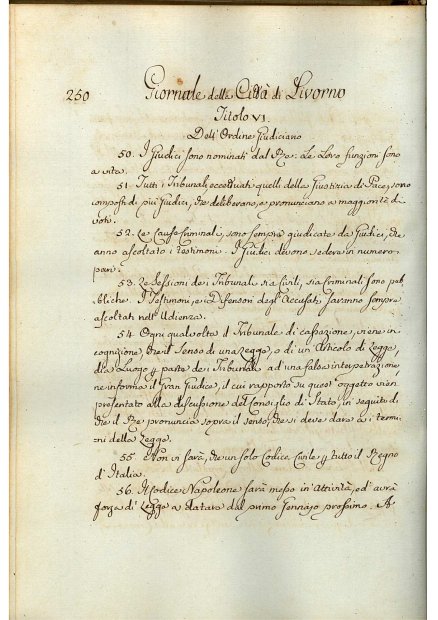 250 Giornale della Città di Livorno
Titolo VI.
Dell'Ordine Giudiciario
50. I Giudici sono nominati dal Re: Le Loro funzioni sono
a vita.
51. Tutti i Tribunali, eccettuati quelli della Giustizia di Pace, sono
composti di più Giudici, che deliberano, e pronunciano a maggiorità di
voti.
52. Le Cause Criminali, sono sempre giudicate da Giudici, che
anno ascoltato i testimoni. I Giudici devono sedere in numero
pari.
53. Le Sessioni dei Tribunali, sia Civili, sia Criminali sono pub
bliche. I Testimoni, e i Difensori degl'Accusati, saranno sempre
ascoltati nell'Udienza.
54. Ogni qual volta il Tribunale di Cassazione, viene in
cognizione, che il senso di una Legge, o di un Articolo di Legge,
dia Luogo p parte dei Tribunali ad una falsa interpretazione
ne informa il Gran Giudice, il cui rapporto su quest'oggetto vien
presentato alla discussione del Consiglio di Stato, in seguito di
che il Re pronuncia sopra il senso, che si deve dare ai termi
ni della Legge.
55. Non vi sarà, che un solo Codice Civile p tutto il Regno
d'Italia.
56. Il Codice Napoleone sarà messo in Attività, ed avrà
forza di Legge a datare dal primo Gennajo prossimo. A